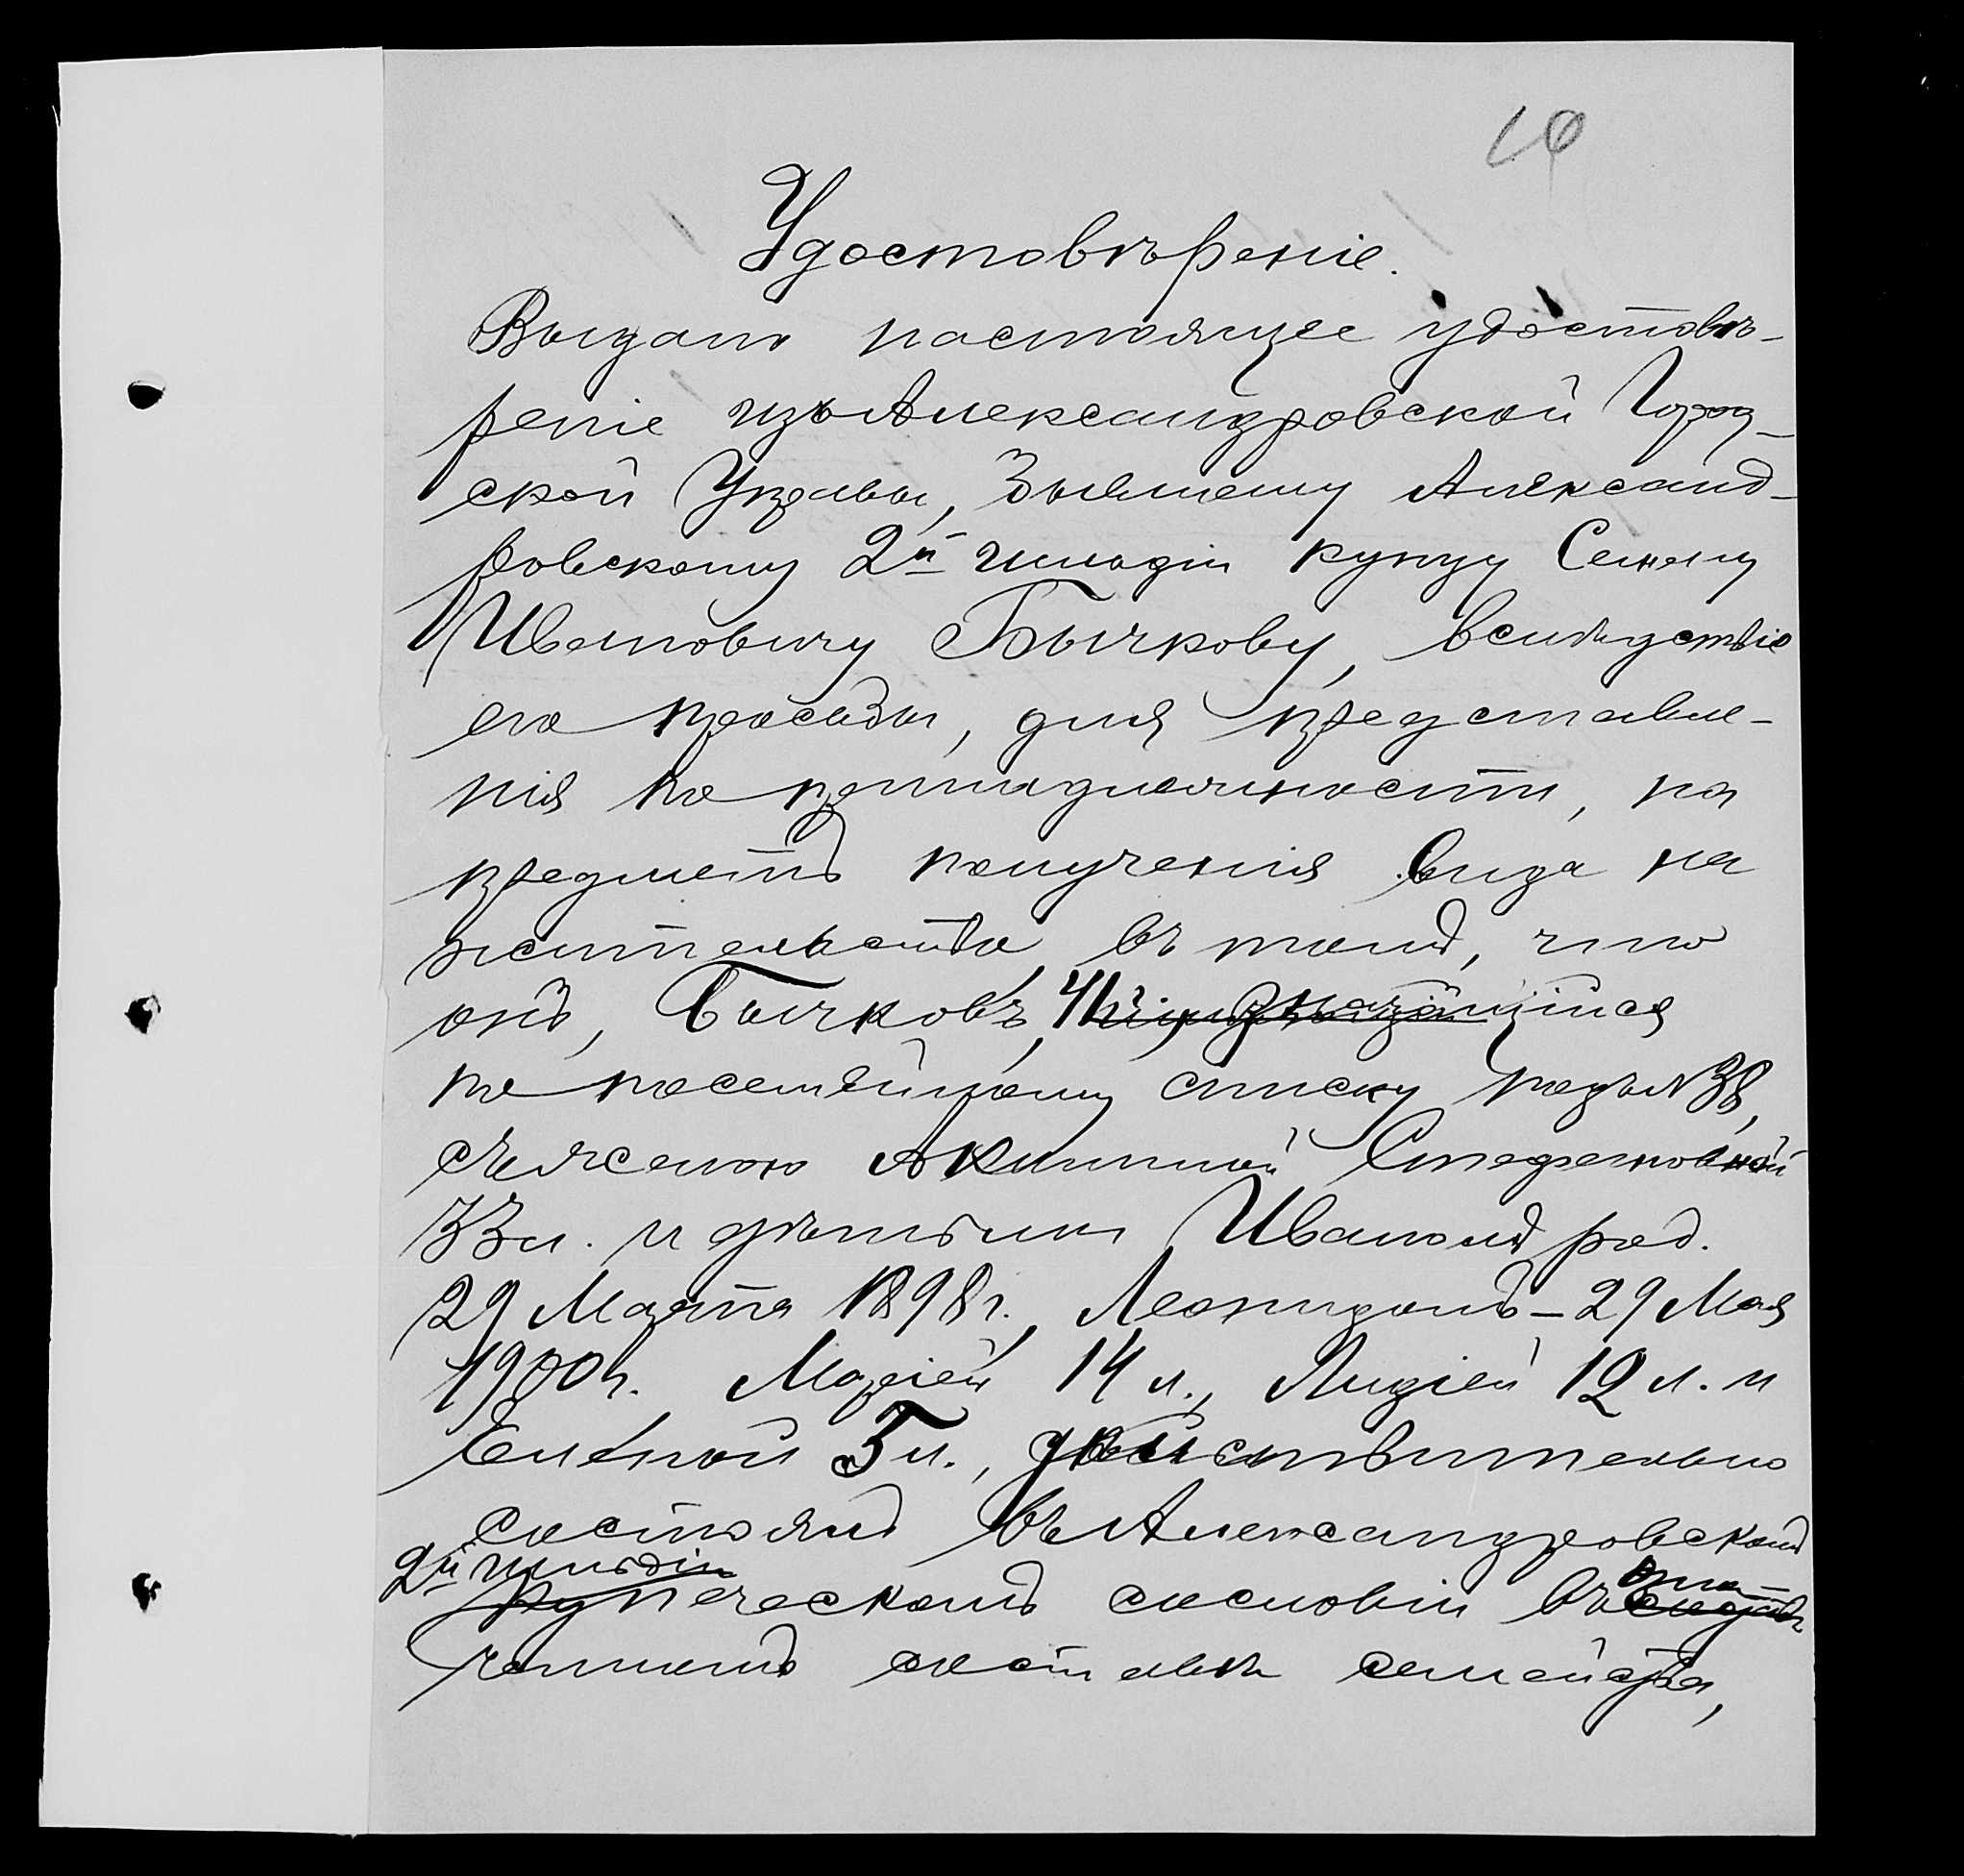 10
Удостовѣреніе.
Выдано настоящее удостовѣ-
реніе изъ Александровской Город-
ской Управы, бывшему Александ-
ровскому 2й гильдіи купцу Семену
Ивановичу Бычкову, вслѣдствіе
его просьбы, для представле-
нія по принадлежности, на
предметъ полученія вида на
жительство въ томъ, что
онъ, Бычковъ, 41 значащійся
по посемейному списку подъ № 38,
съ женою Акилиной Стефановной
33 л. и дѣтьми Иваномъ род.
29 Марта 1898 г., Леонидомъ - 29 Мая
1900 г. Маріей 14 л., Лидіей 12 л. и
Еленой 5 л., дѣйствительно
состоялъ въ Александровскомъ
2й гильдіи
купеческомъ сословіи въ озна-
ченномъ составѣ семейства,